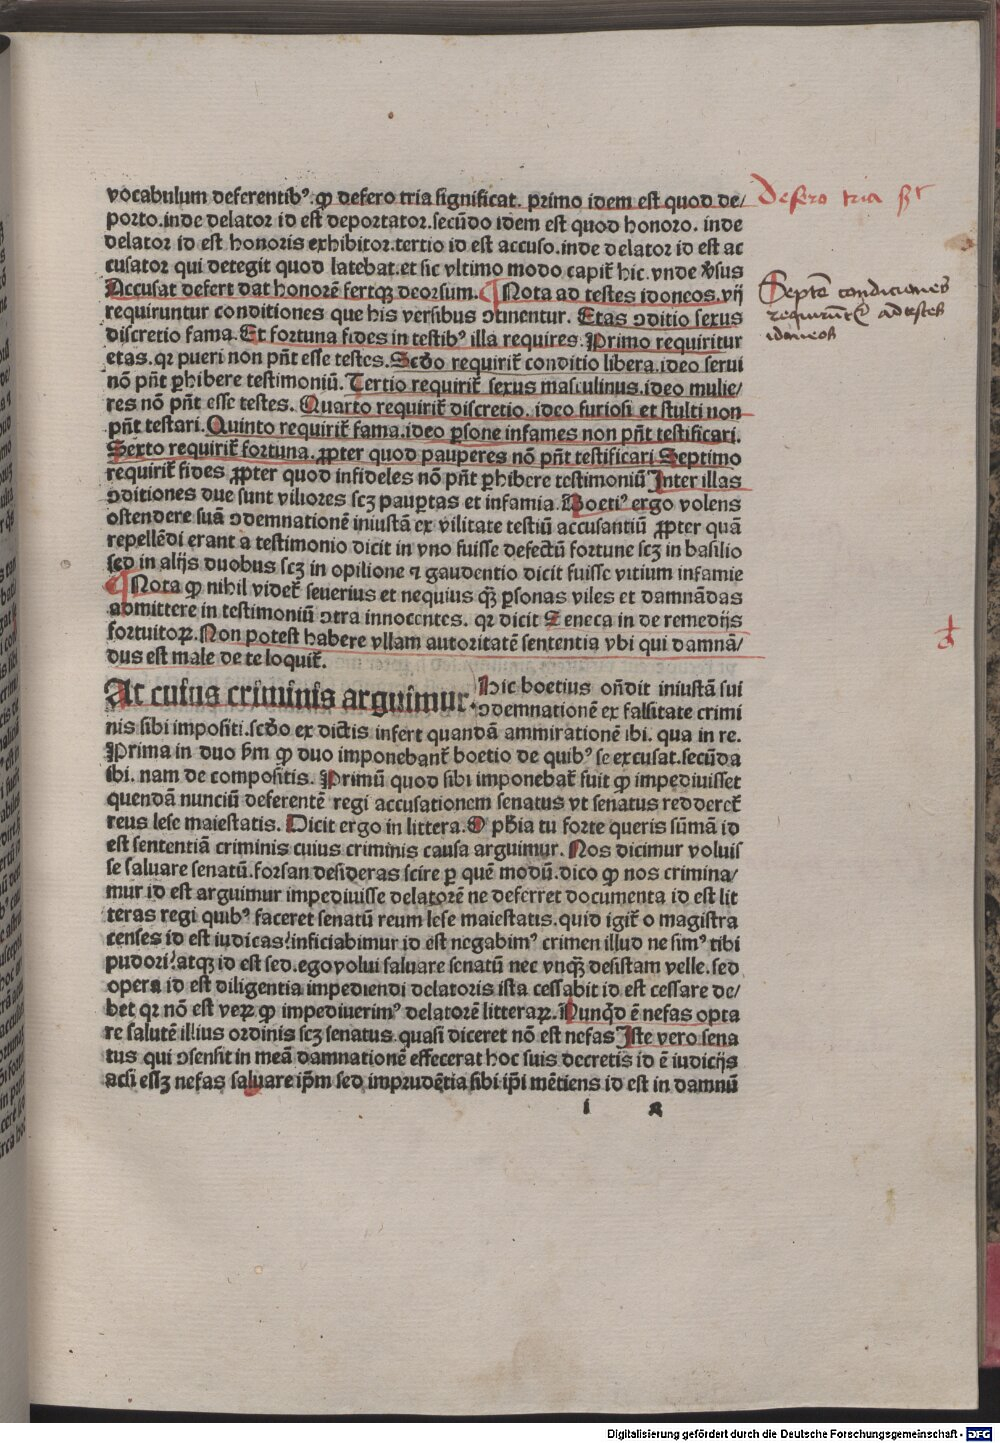 vocabulum deferentibꝰ. ꝙ defero tria significat. primo idem est quod de/
porto. inde delator id est deportator. secūdo idem est quod honoro. inde
delator id est honoris exhibitor. tertio id est accuso. inde delator id est ac
cusator qui detegit quod latebat. et sic vltimo modo capit̄ hic. vnde v̄sus
Accusat defert dat honorē fertqꝫ deorsum. ¶ Nota ad testes idoneos. vij
requiruntur conditiones que his versibus ꝯtinentur. Etas ꝯditio sexus
discretio fama. Et fortuna fides in testibꝰ illa requires. Primo requiritur
etas. qꝛ pueri non pn̄t esse testes. Scd̄o requirit̄ conditio libera. ideo serui
nō pn̄t ꝑhibere testimoniū. Tertio requirit̄ sexus masculinus. ideo mulie/
res nō pn̄t esse testes. Quarto requirit̄ discretio. ideo furiosi et stulti non
pn̄t testari. Quinto requirit̄ fama. ideo ꝑsone infames non pn̄t testificari.
Sexto requirit̄ fortuna. ꝓpter quod pauperes nō pn̄t testificari Septimo
requirit̄ fides ꝓpter quod infideles nō pn̄t ꝑhibere testimoniū Inter illas
ꝯditiones due sunt viliores scꝫ pauꝑtas et infamia. Boetiꝰ ergo volens
ostendere suā ꝯdemnationē iniustā ex vilitate testiū accusantiū ꝓpter quā
repellēdi erant a testimonio dicit in vno fuisse defectū fortune scꝫ in basilio
sed in alijs duobus scꝫ in opilione ⁊ gaudentio dicit fuisse vitium infamie
¶ Nota ꝙ nihil videt̄ seuerius et nequius qꝫ̄ ꝑsonas viles et damnādas
admittere in testimoniū ꝯtra innocentes. qꝛ dicit Seneca in de remedijs
fortuitoꝝ. Non potest habere vllam autoritatē sententia vbi qui damnā/
dus est male de te loquit̄.
At cuius criminis arguimur. Hic boetius on̄dit iniustā sui
ꝯdemnationē ex falsitate crimi
nis sibi impositi. scd̄o ex dictis infert quandā ammirationē ibi. qua in re.
Prima in duo fm̄ ꝙ duo imponebant̄ boetio de quibꝰ se excusat. secūda
ibi. nam de compositis. Primū quod sibi imponebat̄ fuit ꝙ impediuisset
quendā nunciū deferentē regi accusationem senatus vt senatus redderet̄
reus lese maiestatis. Dicit ergo in littera. O ph̄ia tu forte queris sūmā id
est sententiā criminis cuius criminis causa arguimur. Nos dicimur voluis
se saluare senatū. forsan desideras scire ꝑ quē modū. dico ꝙ nos crimina/
mur id est arguimur impediuisse delatorē ne deferret documenta id est lit
teras regi quibꝰ faceret senatū reum lese maiestatis. quid igit̄ o magistra
censes id est iudicas? inficiabimur id est negabimꝰ crimen illud ne simꝰ tibi
pudori? atqꝫ id est sed. ego volui saluare senatū nec vnqꝫ̄ desistam velle. sed
opera id est diligentia impediendi delatoris ista cessabit id est cessare de/
bet qꝛ nō est veꝝ ꝙ impediuerimꝰ delatorē litteraꝝ. Nunqd̄ ē nefas opta
re salutē illius ordinis scꝫ senatus quasi diceret nō est nefas Iste vero sena
tus qui ꝯsensit in meā damnationē effecerat hoc suis decretis id ē iudicijs
acsi essꝫ nefas saluare ip̄m sed imprudētia sibi ip̄i mētiens id est in damnū
i
Defero tria
Septē condiciones
requirūt ad testes
idoneos